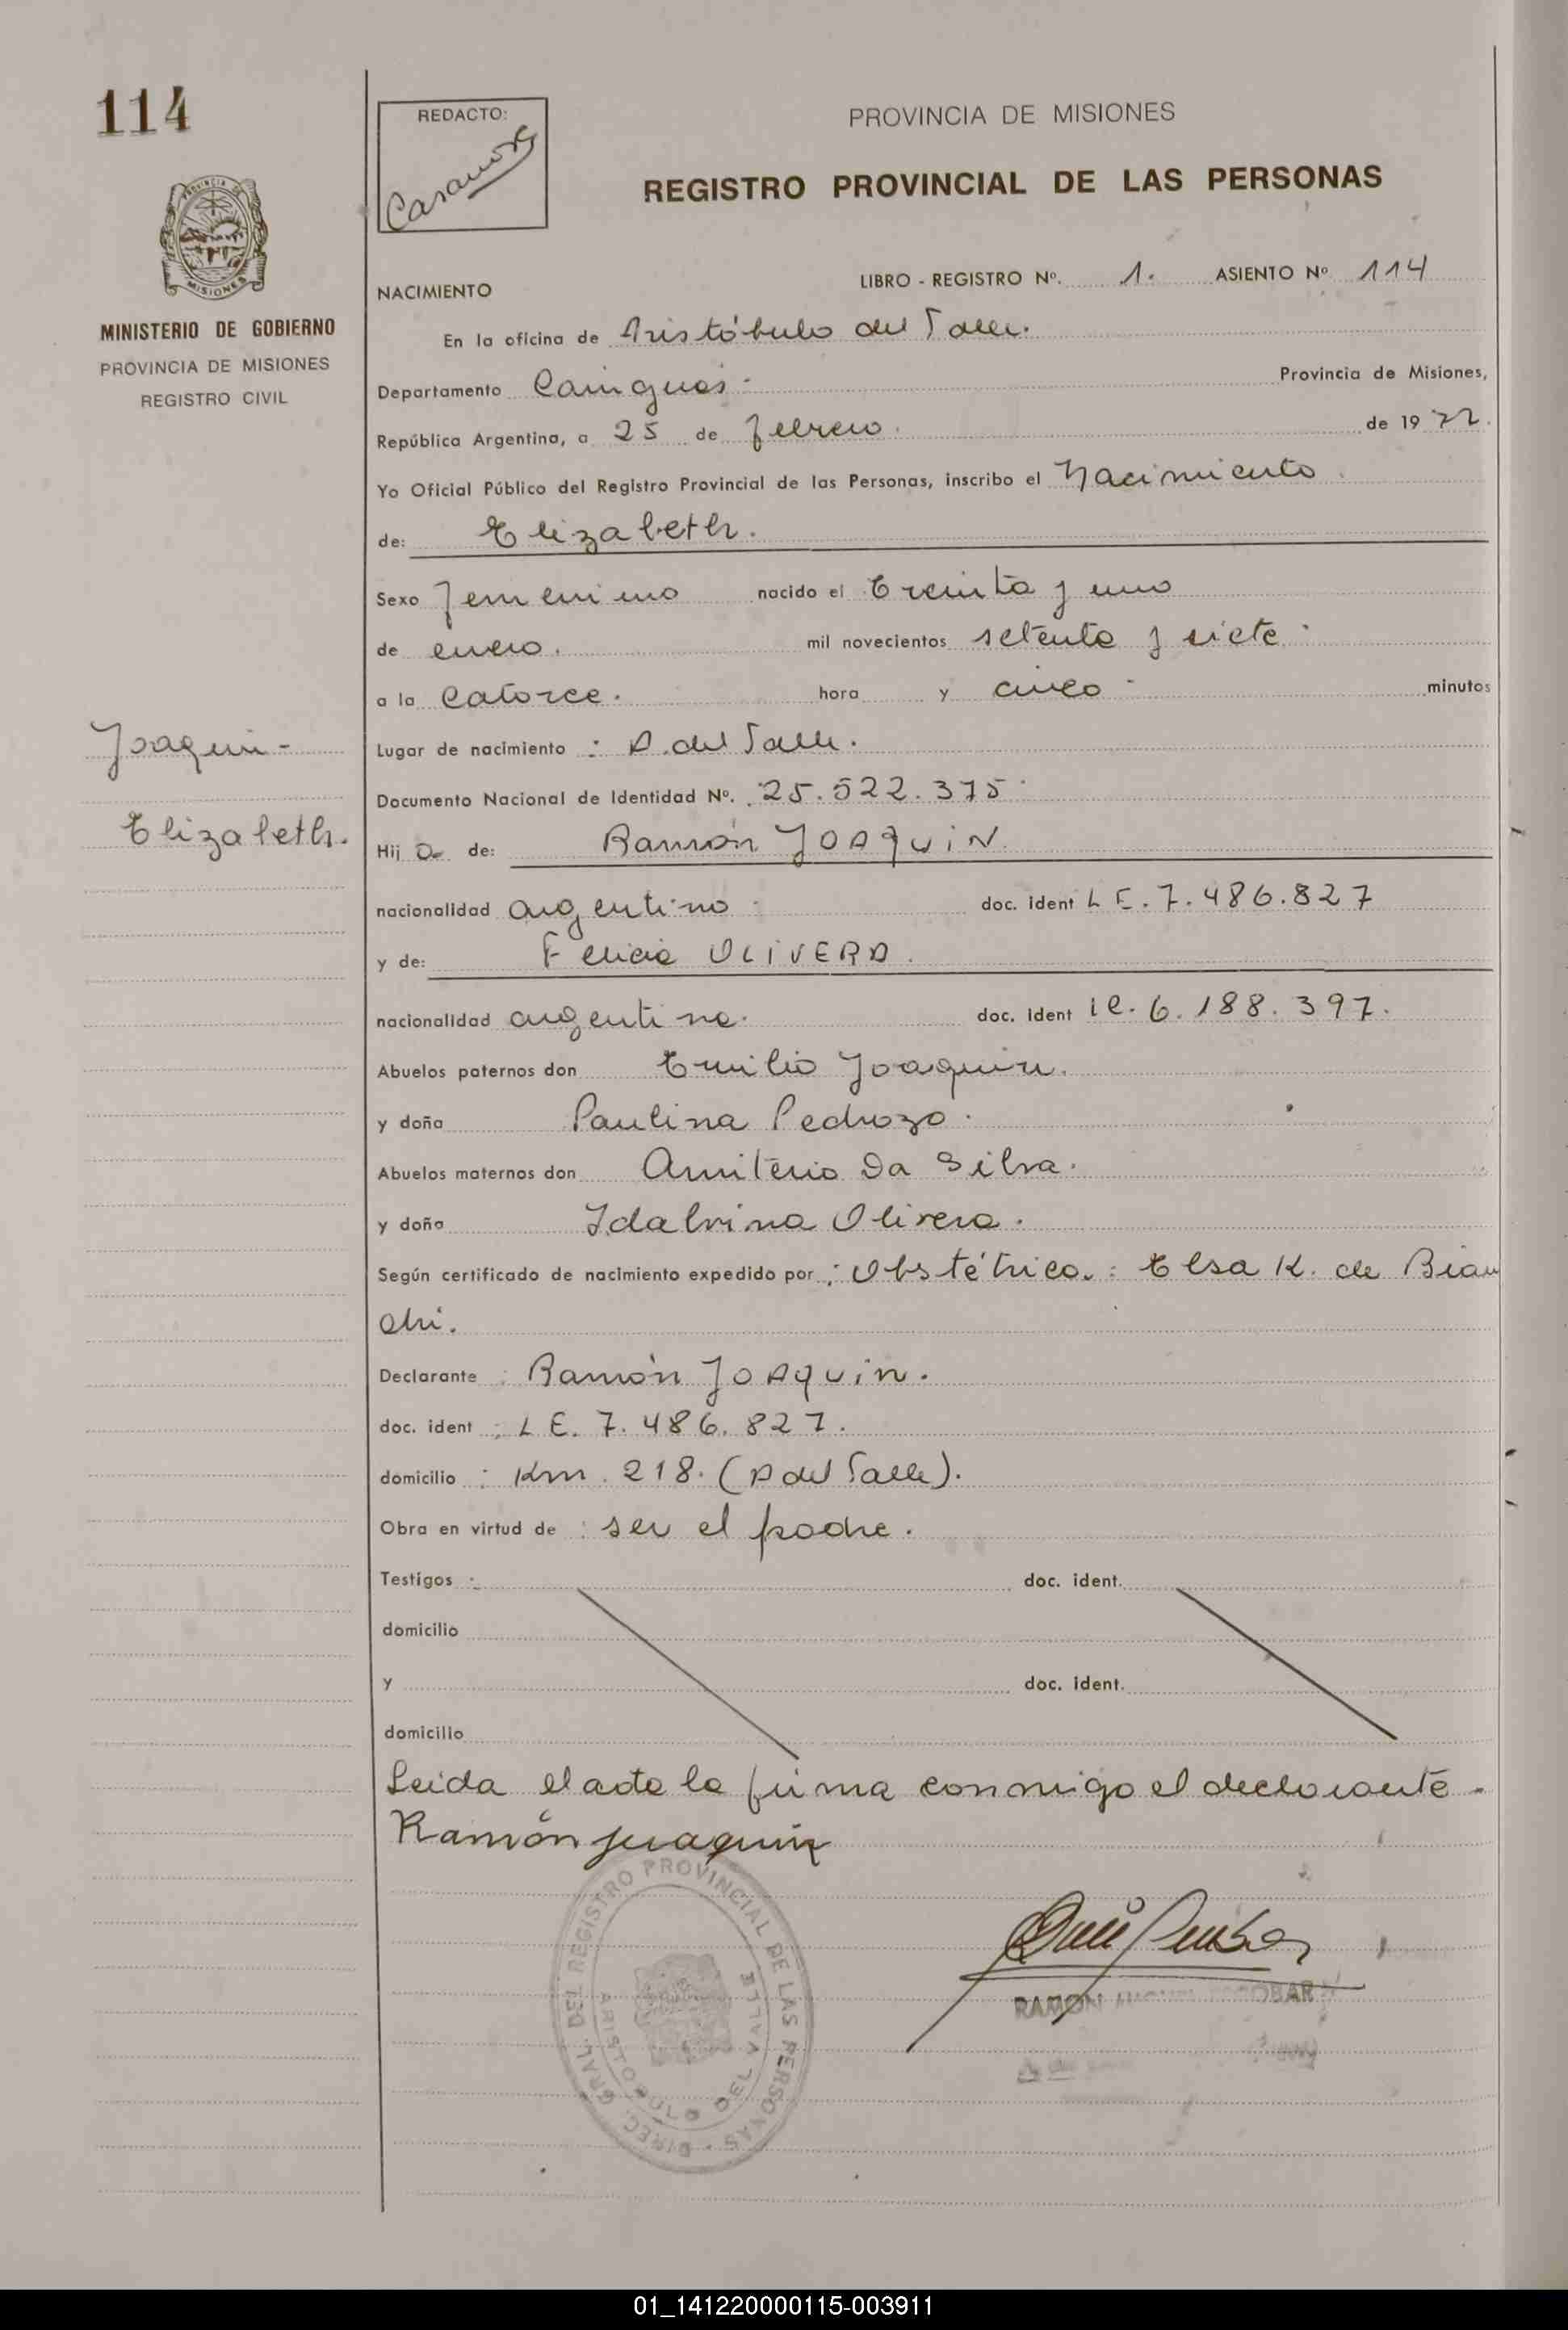 114
REDACTO:
Casanova
PROVINCIA DE MISIONES
REGISTRO PROVINCIAL DE LAS PERSONAS
PROVINCIA DE
MISIONES
MINISTERIO DE GOBIERNO
PROVINCIA DE MISIONES
REGISTRO CIVIL
LIBRO - REGISTRO Nº. 1. ASIENTO Nº 114
NACIMIENTO
En la oficina de Aristóbulo del Valle.
Departamento Cainguás. Provincia de Misiones,
República Argentina, a 25 de febrero. de 1977.
Yo Oficial Público del Registro Provincial de las Personas, inscribo el Nacimiento.
de: Elizabeth.
Sexo femenino nacido el treinta y uno
de enero. mil novecientos setenta y siete.
a la catorce. hora y cinco. minutos
Joaquin-
Lugar de nacimiento : A. del Valle.
Documento Nacional de Identidad Nº. 25.522.375.
Elizabeth.
Hij a de: Ramón JOAQUIN.
nacionalidad argentino. doc. ident LE. 7.486.827
y de: Felicia OLIVERA.
nacionalidad argentina. doc. ident 6.188.397.
Abuelos paternos don Emilio Joaquin.
y doña Paulina Pedrozo.
Abuelos maternos don Amiterio Da Silva.
y doña Idalvina Olivera.
Según certificado de nacimiento expedido por : Obstétrica. : Elsa K. de Bian
chi.
Declarante : Ramón JOAQUIN.
doc. ident : LE. 7.486.827.
domicilio : Km. 218. (A del Valle).
Obra en virtud de : ser el padre.
Testigos : doc. ident.
domicilio
y doc. ident.
domicilio
Leida el acta la firma conmigo el declarante.
Ramón Juaquin
DIREC. GRAL. DEL REGISTRO PROVINCIAL DE LAS PERSONAS
ARISTOBULO DEL VALLE
RAMON ESCOBAR
01_141220000115-003911